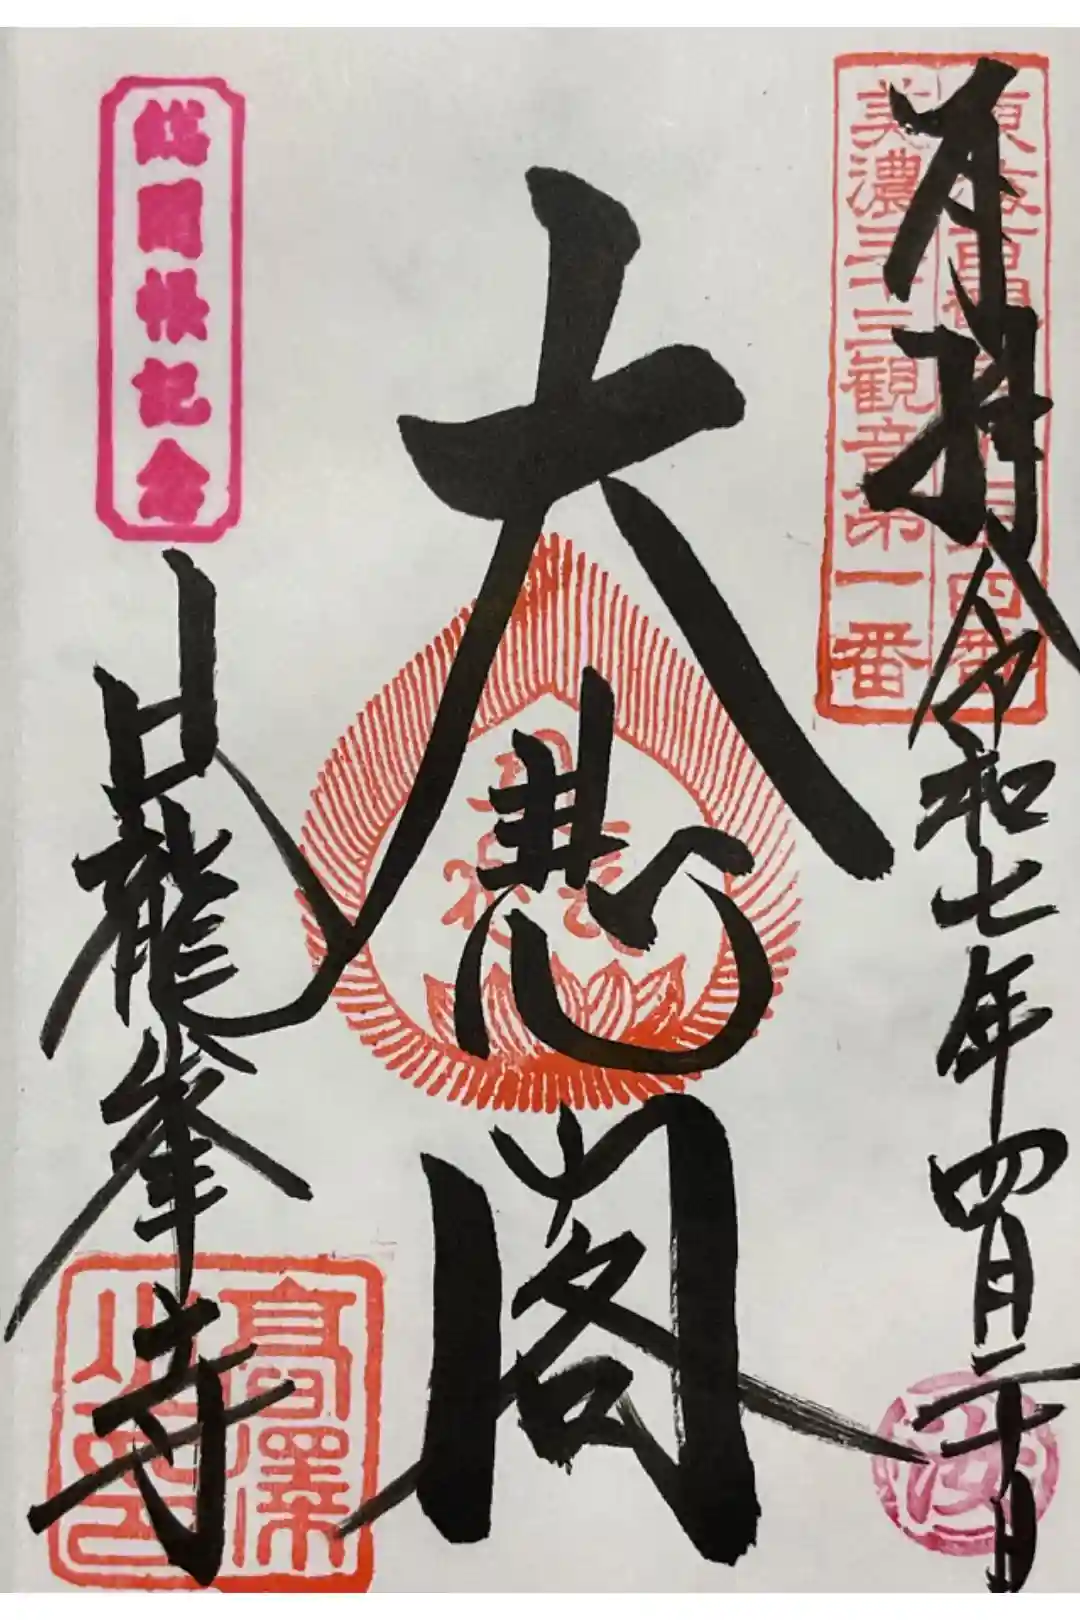 東海百観音第三四番
美濃三十三観音第一番
奉拝 令和七年四月二十日
大悲閣
総開帳記念
日龍峯寺
高澤
山印